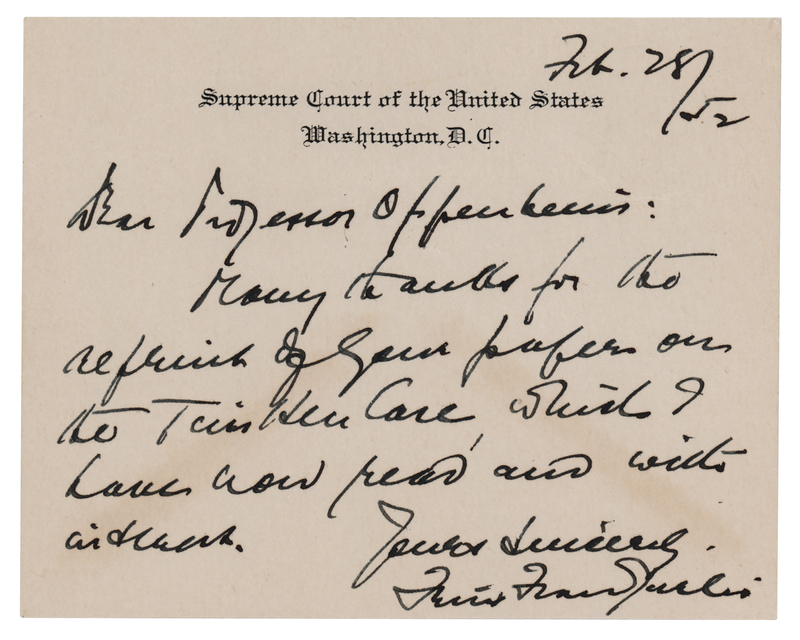 Feb. 28/52
Supreme Court of the United States
Washington, D. C.
Dear Professor Oppenheim:
Many thanks for the
reprint of your paper on
the Timken Case, which I
have now read and with
interest.
Yours sincerely,
Felix Frankfurter